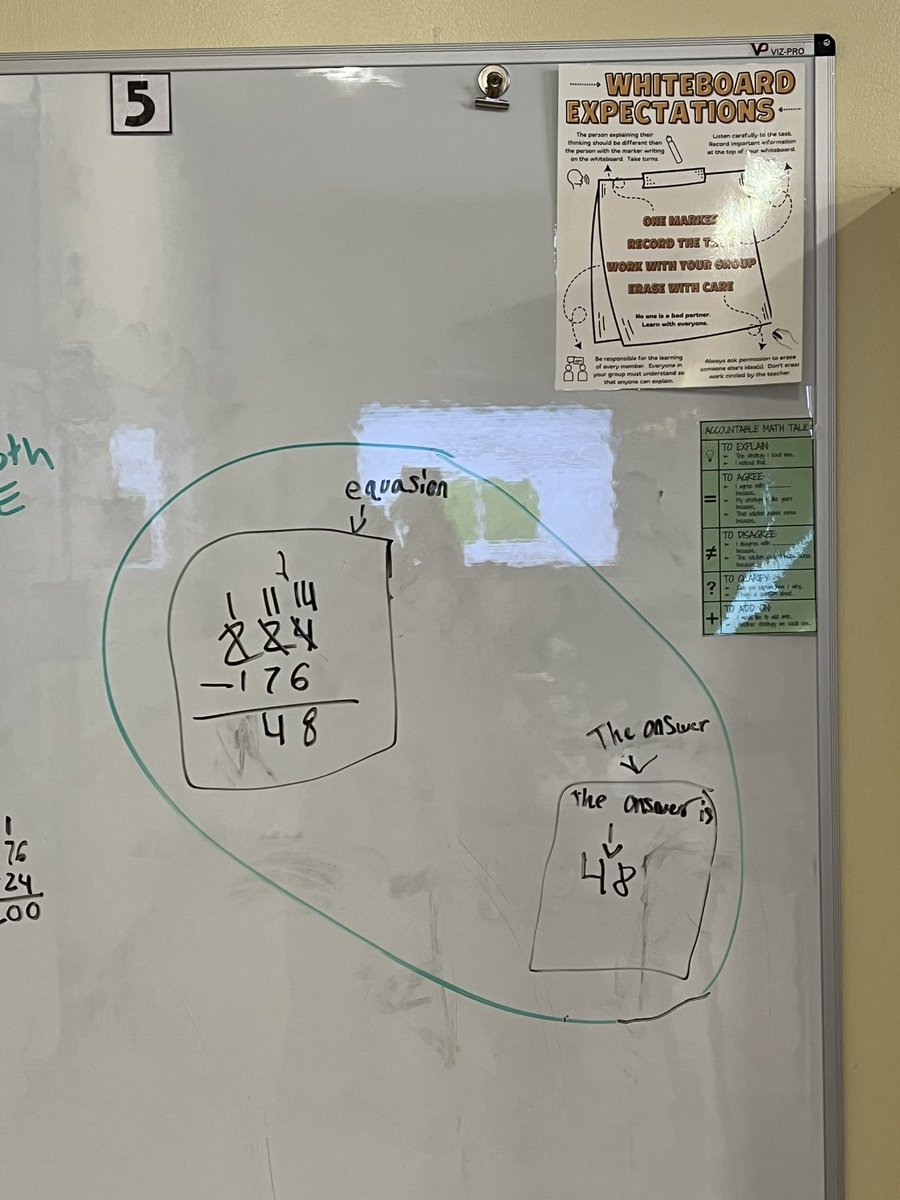 VIZ-PRO
5
WHITEBOARD
EXPECTATIONS
The person explaining their
thinking should be different than
the person with the marker writing
on the whiteboard. Take turns.
Listen carefully to the task.
Record important information
at the top of your whiteboard.
ONE MARKER
RECORD THE
WORK WITH YOUR GROUP
ERASE WITH CARE
No one is a bad partner.
Learn with everyone.
Be responsible for the learning
of every member. Everyone in
your group must understand so
that anyone can explain.
Always ask permission to erase
someone else's idea(s). Don't erase
work circled by the teacher.
ACCOUNTABLE MATH TALK
TO EXPLAIN
The strategy I used was..
I noticed that..
=
TO AGREE
I agree with
because..
My strategy is like yours
because..
That solution makes sense
because..
≠
TO DISAGREE
I disagree with
because..
?
TO CLARIFY
I have a question about..
+
TO ADD ON
I would like to add onto..
Another strategy we could use..
oth
E
equasion
1 11 14
2 2 4
-176
48
The answer
The answer is
48
1
76
24
00